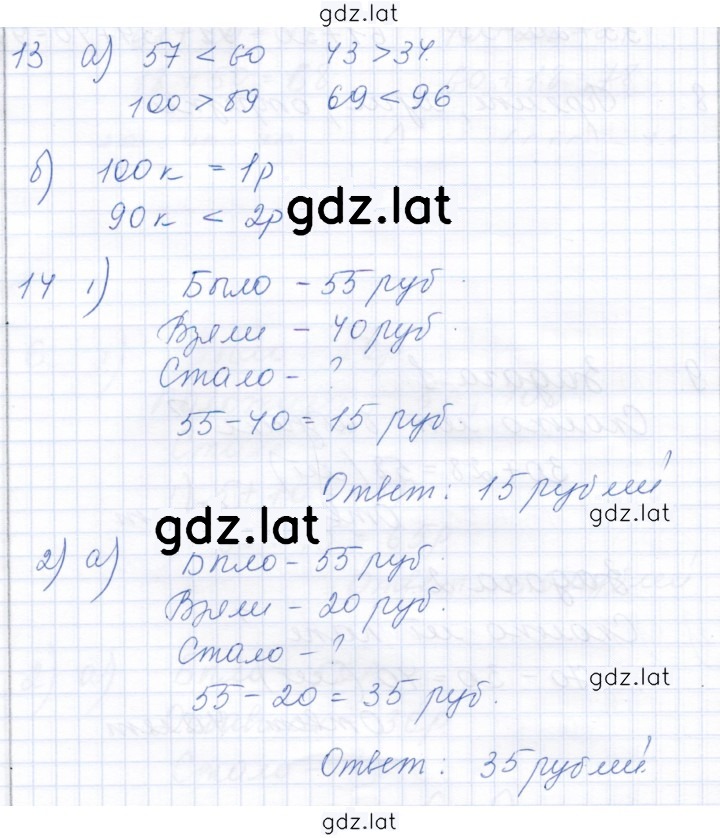 gdz.lat
13 а) 57 < 60 43 > 34
100 > 89 69 < 96
б) 100 к = 1р
90 к < 2р
gdz.lat
14 1) Было - 55 руб.
Взяли - 40 руб.
Стало - ?
55 - 40 = 15 руб
Ответ: 15 рублей
gdz.lat
gdz.lat
2) а) Было - 55 руб.
Взяли - 20 руб.
Стало - ?
gdz.lat
55 - 20 = 35 руб.
Ответ: 35 рублей
gdz.lat